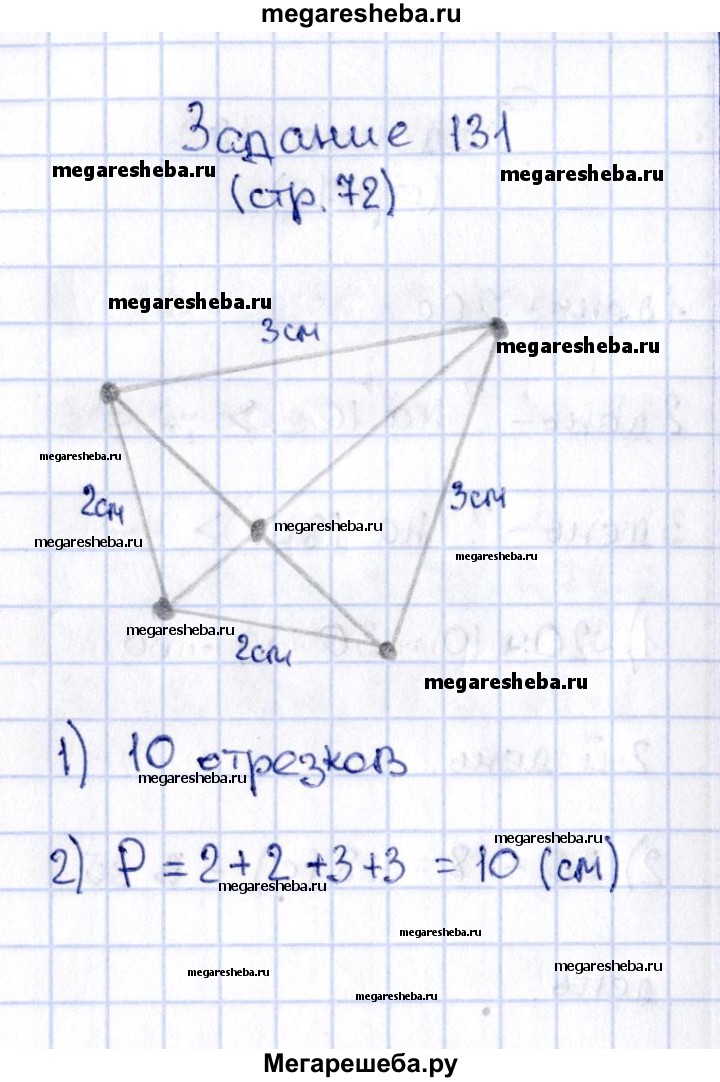 megaresheba.ru
Задание 131
megaresheba.ru
megaresheba.ru
(стр. 72)
megaresheba.ru
3см
megaresheba.ru
megaresheba.ru
2см
3см
megaresheba.ru
megaresheba.ru
megaresheba.ru
megaresheba.ru
2см
megaresheba.ru
1) 10 отрезков
megaresheba.ru
megaresheba.ru
2) P = 2 + 2 + 3 + 3 = 10 (см)
megaresheba.ru
megaresheba.ru
megaresheba.ru
megaresheba.ru
megaresheba.ru
Мегарешеба.ру